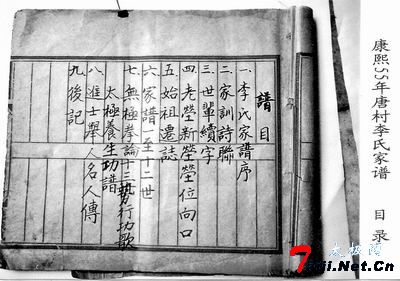 康熙55年唐村李氏家谱 目录
譜目
一、李氏家譜序
二、家訓詩聯
三、世輩續字
四、老塋新塋塋位向口
五、始祖遷誌
六、家譜一至十二世
七、無極拳論十三勢行功歌
太極養生功譜
八、進士舉人名人傳
九、後記
7aiji.Net.Cn